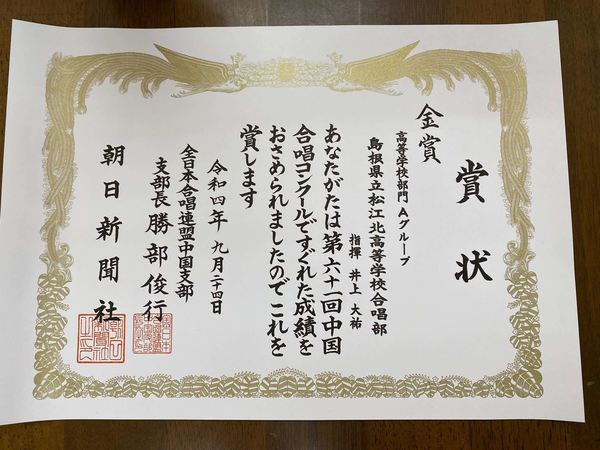 賞状
金賞
高等学校部門 Aグループ
島根県立松江北高等学校合唱部
指揮 井上 大祐
あなたがたは第六十一回中国
合唱コンクールですぐれた成績を
おさめられましたのでこれを
賞します
令和四年九月二十四日
全日本合唱連盟中国支部
支部長 勝部俊行
朝日新聞社